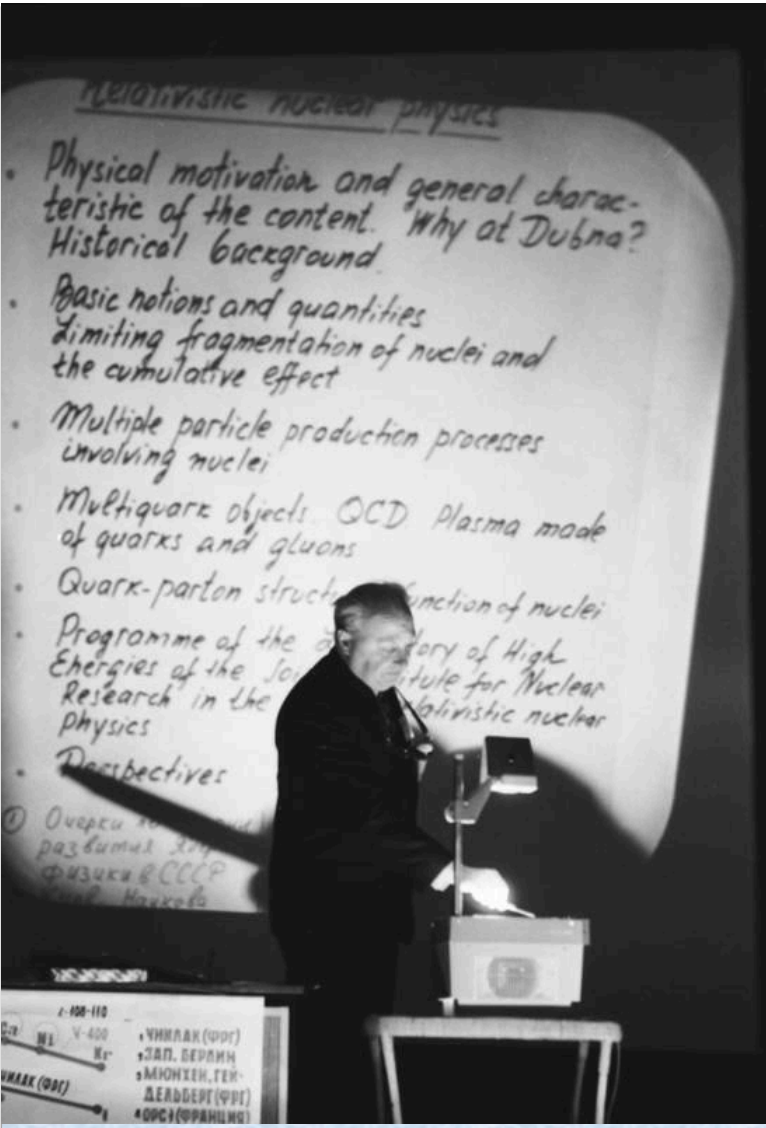 Relativistic nuclear physics
• Physical motivation and general charac-
teristic of the content. Why at Dubna?
Historical background.
• Basic notions and quantities
Limiting fragmentation of nuclei and
the cumulative effect
• Multiple particle production processes
involving nuclei
• Multiquark objects. QCD Plasma made
of quarks and gluons
• Quark-parton struct unction of nuclei
• Programme of the tory of High
Energies of the Joi itute for Nuclear
Research in the lativistic nuclear
Physics
• Perspectives
① Очерки по
развития
физики в СССР
Наукова
z-108-110
Ca Ni V-400
Kr
ЧИКЛАК (ФРГ)
, ЧИКЛАК (ФРГ)
, ЗАП. БЕРЛИН
, МЮНХЕН, ГЕЙ-
ДЕЛЬБЕРГ (ФРГ)
ОРСЭ (ФРАНЦИЯ)